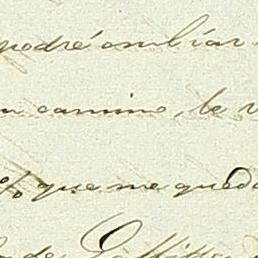 podré enviar
camino, le
% que me queda
de